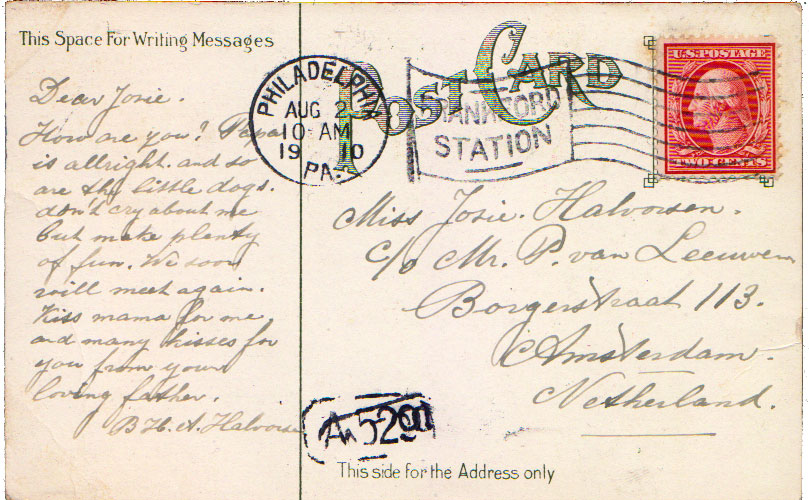 This Space For Writing Messages
POST CARD
PHILADELPHIA
AUG 2
10 AM
1910
PA.
STATION
U.S. POSTAGE
TWO CENTS
Dear Josie.
How are you? Papa
is allright. and so
are the little dogs.
don't cry about me
but make plenty
of fun. We soon
will meet again.
Kiss mama for me
and many kisses for
you from your
loving father.
B H. A. Halvorsen
Miss Josie. Halvorsen.
c/o Mr. P. van Leeuwen
Borgerstraat 113.
Amsterdam.
Netherland.
This side for the Address only